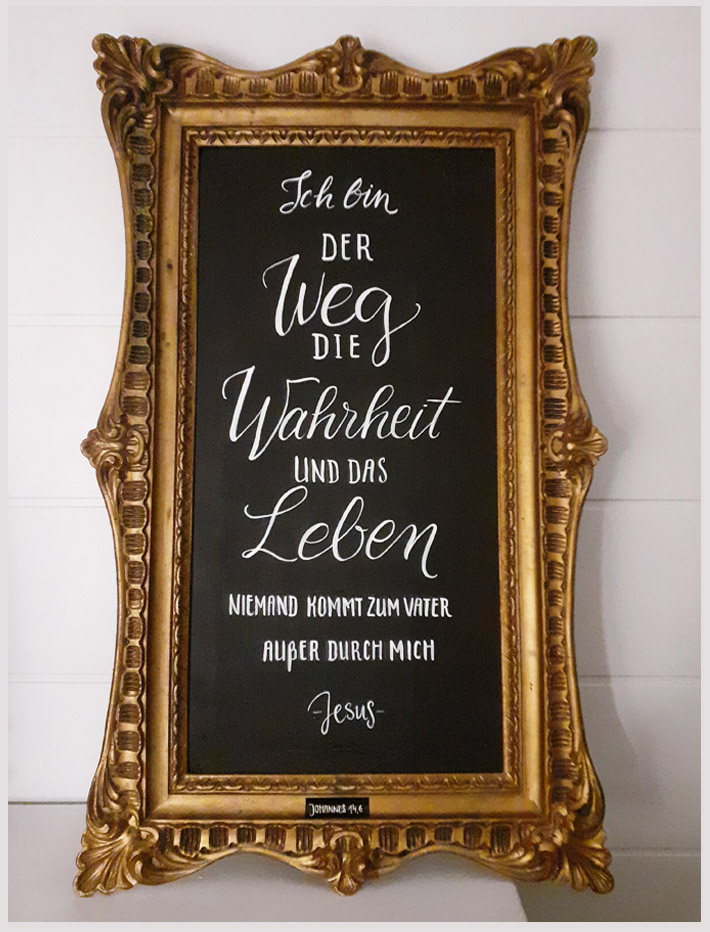 Ich bin
DER
Weg
DIE
Wahrheit
UND DAS
Leben
NIEMAND KOMMT ZUM VATER
AUßER DURCH MICH
-Jesus-
JOHANNES 14,6